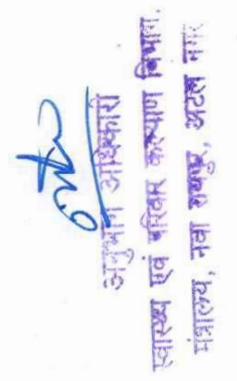 अनुभाग अधिकारी
स्वास्थ्य एवं परिवार कल्याण विभाग.
मंत्रालय, नवा रायपुर, अटल नगर